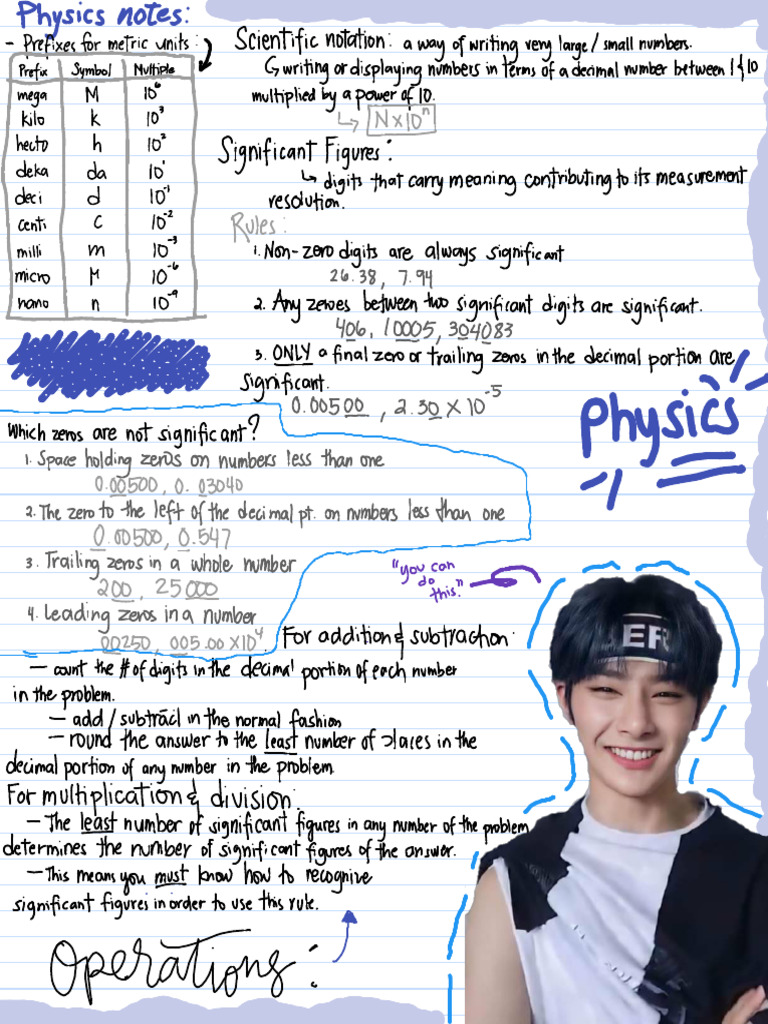 Physics notes:
- Prefixes for metric units:
Prefix Symbol Multiple
mega M 10⁶
kilo k 10³
hecto h 10²
deka da 10¹
deci d 10⁻¹
centi c 10⁻²
milli m 10⁻³
micro M 10⁻⁶
nano n 10⁻⁹
Scientific notation: a way of writing very large/small numbers.
↳ writing or displaying numbers in terms of a decimal number between 1 & 10
multiplied by a power of 10.
↳ N×10ⁿ
Significant Figures:
↳ digits that carry meaning contributing to its measurement
resolution.
Rules:
1. Non-zero digits are always significant
26.38, 7.94
2. Any zeroes between two significant digits are significant.
406, 10005, 304083
3. ONLY a final zero or trailing zeros in the decimal portion are
significant.
0.00500, 2.30 × 10⁻⁵
physics
Which zeros are not significant?
1. Space holding zeros on numbers less than one
0.00500, 0.03040
2. The zero to the left of the decimal pt. on numbers less than one
0.00500, 0.547
3. Trailing zeros in a whole number
200, 25000
4. Leading zeros in a number
00250, 005.00 ×10⁴
"you can
do
this."
ER
For addition & subtraction:
- count the # of digits in the decimal portion of each number
in the problem.
- add/subtract in the normal fashion
- round the answer to the least number of places in the
decimal portion of any number in the problem.
For multiplication & division:
- The least number of significant figures in any number of the problem
determines the number of significant figures of the answer.
- This means you must know how to recognize
significant figures in order to use this rule.
Operations: